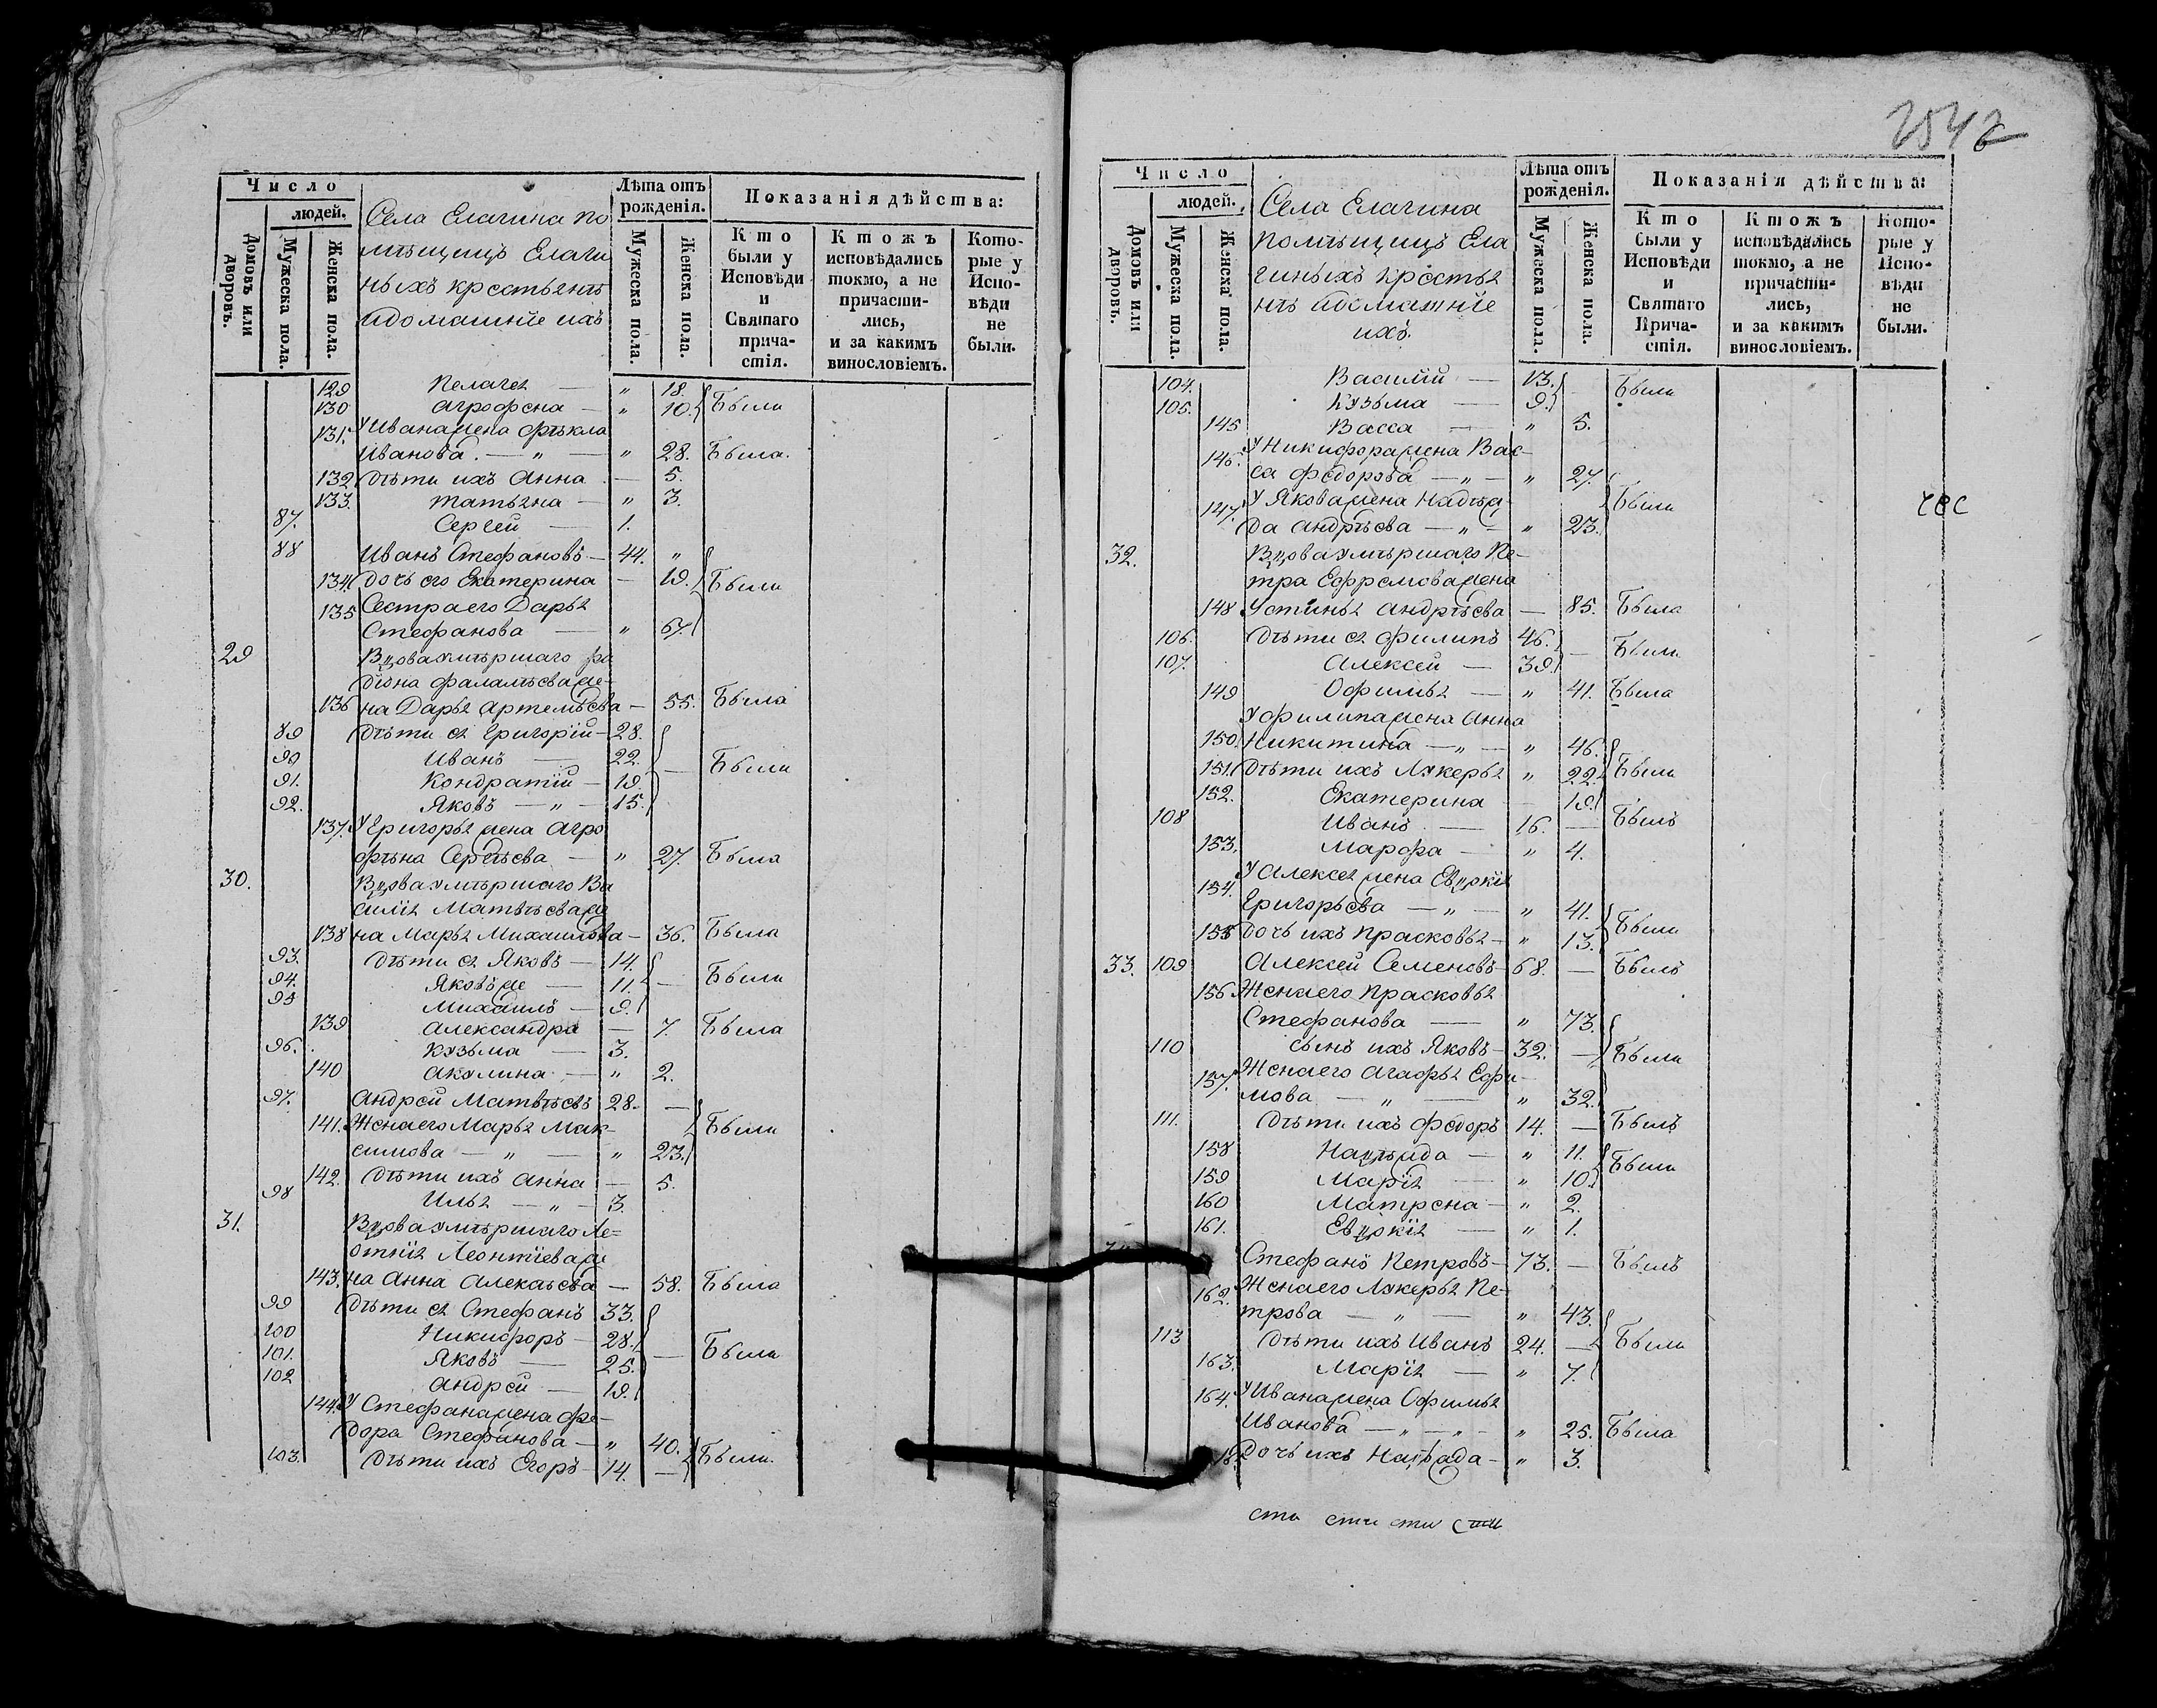 Число
людей.
Домовъ или дворовъ.
Мужеска пола.
Женска пола.
Села Елагина по
мѣщицъ Елаги
ныхъ крестьянѣ
идомашніе ихъ
Лѣта отъ рожденія.
Мужеска пола.
Женска пола.
Показанія дѣйства:
Кто были у Исповѣди и Святаго причастія.
Ктожъ исповѣдались токмо, а не причастились, и за какимъ винословіемъ.
Которые у Исповѣди не были.
129 Пелагея — " 18.
130 Агрофена — " 10. Были
131. У Ивана жена Фѣкла
Иванова. — " — " 28. Была.
132 Дѣти ихъ Анна — 5.
133. Татьяна — " 3.
87. Сергей — 1.
88 Иванъ Стефановъ — 44. "
134. Дочь его Екатерина — 19. Были
135 Сестра его Дарья
Стефанова — " 67.
29 Вдова умѣршаго Ро
діона Фаламѣева же-
136 на Дарья Артемьева — 55. Была
89 Дѣти ея Григорій — 28.
90 Иванъ — 22.
91. Кондратій — 19. — Были
92. Яковъ — " — 15.
137. У Григорья жена Агро
фѣна Сергѣева — " 27. Была
30. Вдова умѣршаго Ва
силія Матвѣева же
138 на Марья Михаилова — 36. Была
93. Дѣти ея Яковъ — 14.
94. Яковъ же — 11. — Были
95 Михаилъ — 9.
139 Александра — 7. Была
96. Кузьма — 3.
140 Акулина — " 2.
97. Андрей Матвѣевъ 28. —
141. Жена его Марья Мак- Были
симова — " — " 23.
142. Дѣти ихъ Анна — 5.
98 Илья — " — 3.
31. Вдова умѣршаго Ле=
онтія Леонтіева же
143. на Анна Алекаѣева — 58. Была
99 Дѣти ея Стефанъ 33.
100 Никифоръ — 28.
101. Яковъ — 25. — Были
102 Андрей — 19.
144. У Стефана жена Фе-
дора Стефанова — " 40.
103. Дѣти ихъ Егоръ — 14. — Были.
254
Число
людей.
Домовъ или дворовъ.
Мужеска пола.
Женска пола.
Села Елагина
помѣщицъ Ела
гиныхъ крестья
нѣ идомашніе
ихъ.
Лѣта отъ рожденія.
Мужеска пола.
Женска пола.
Показанія дѣйства:
Кто были у Исповѣди и Святаго Причастія.
Ктожъ исповѣдались токмо, а не причастились, и за какимъ винословіемъ.
Которые у Исповѣди не были.
104. Василій — 13.
105. Кузьма — 9. Были
145 Васса — " 5.
146. У Никифора жена Вас-
са Федорова — " — " 27.
147. У Якова жена Надѣж- Были
да Андрѣева — " — " 23.
32. Вдова умѣршаго Пе-
тра Ефремова жена
148 Устинья Андрѣева — 85. Была
106. Дѣти ея Филипъ 46.
107. Алексей — 39. — Были
149 Офимья — " 41. Была
У Филипа жена Анна
150. Никитина — " — " 46.
151. Дѣти ихъ Лукерья " 22. Были
152. Екатерина — 19.
108 Иванъ — 16. — Былъ
153. Марфа — " 4.
154. У Алексея жена Евдокія
Григорьева — " — " 41.
155 Дочь ихъ Прасковья — " 13. Были
33. 109 Алексей Семеновъ — 68. — Былъ
156 Жена его Прасковья
Стефанова — " 73.
110 Сынъ ихъ Яковъ — 32. — Были
157. Жена его Агафья Ефи-
мова — " — " 32.
111. Дѣти ихъ Федоръ 14. — Былъ
158 Надѣжда — " 11.
159 Марія — " 10. Были
160 Матрена — " 2.
161. Евдокія — " 1.
Стефанъ Петровъ — 73. — Былъ
162. Жена его Лукерья Пе-
трова — " — " 43.
113 Дѣти ихъ Иванъ 24. — Были
163. Марія — " 7.
164. У Ивана жена Офимья
Иванова — " — " — " 25. Была
Дочь ихъ Надѣжда — " 3.
сти сти сти сти